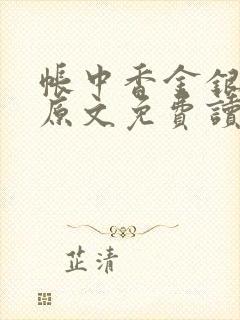 帳中香金銀
原文免費讀
芷清